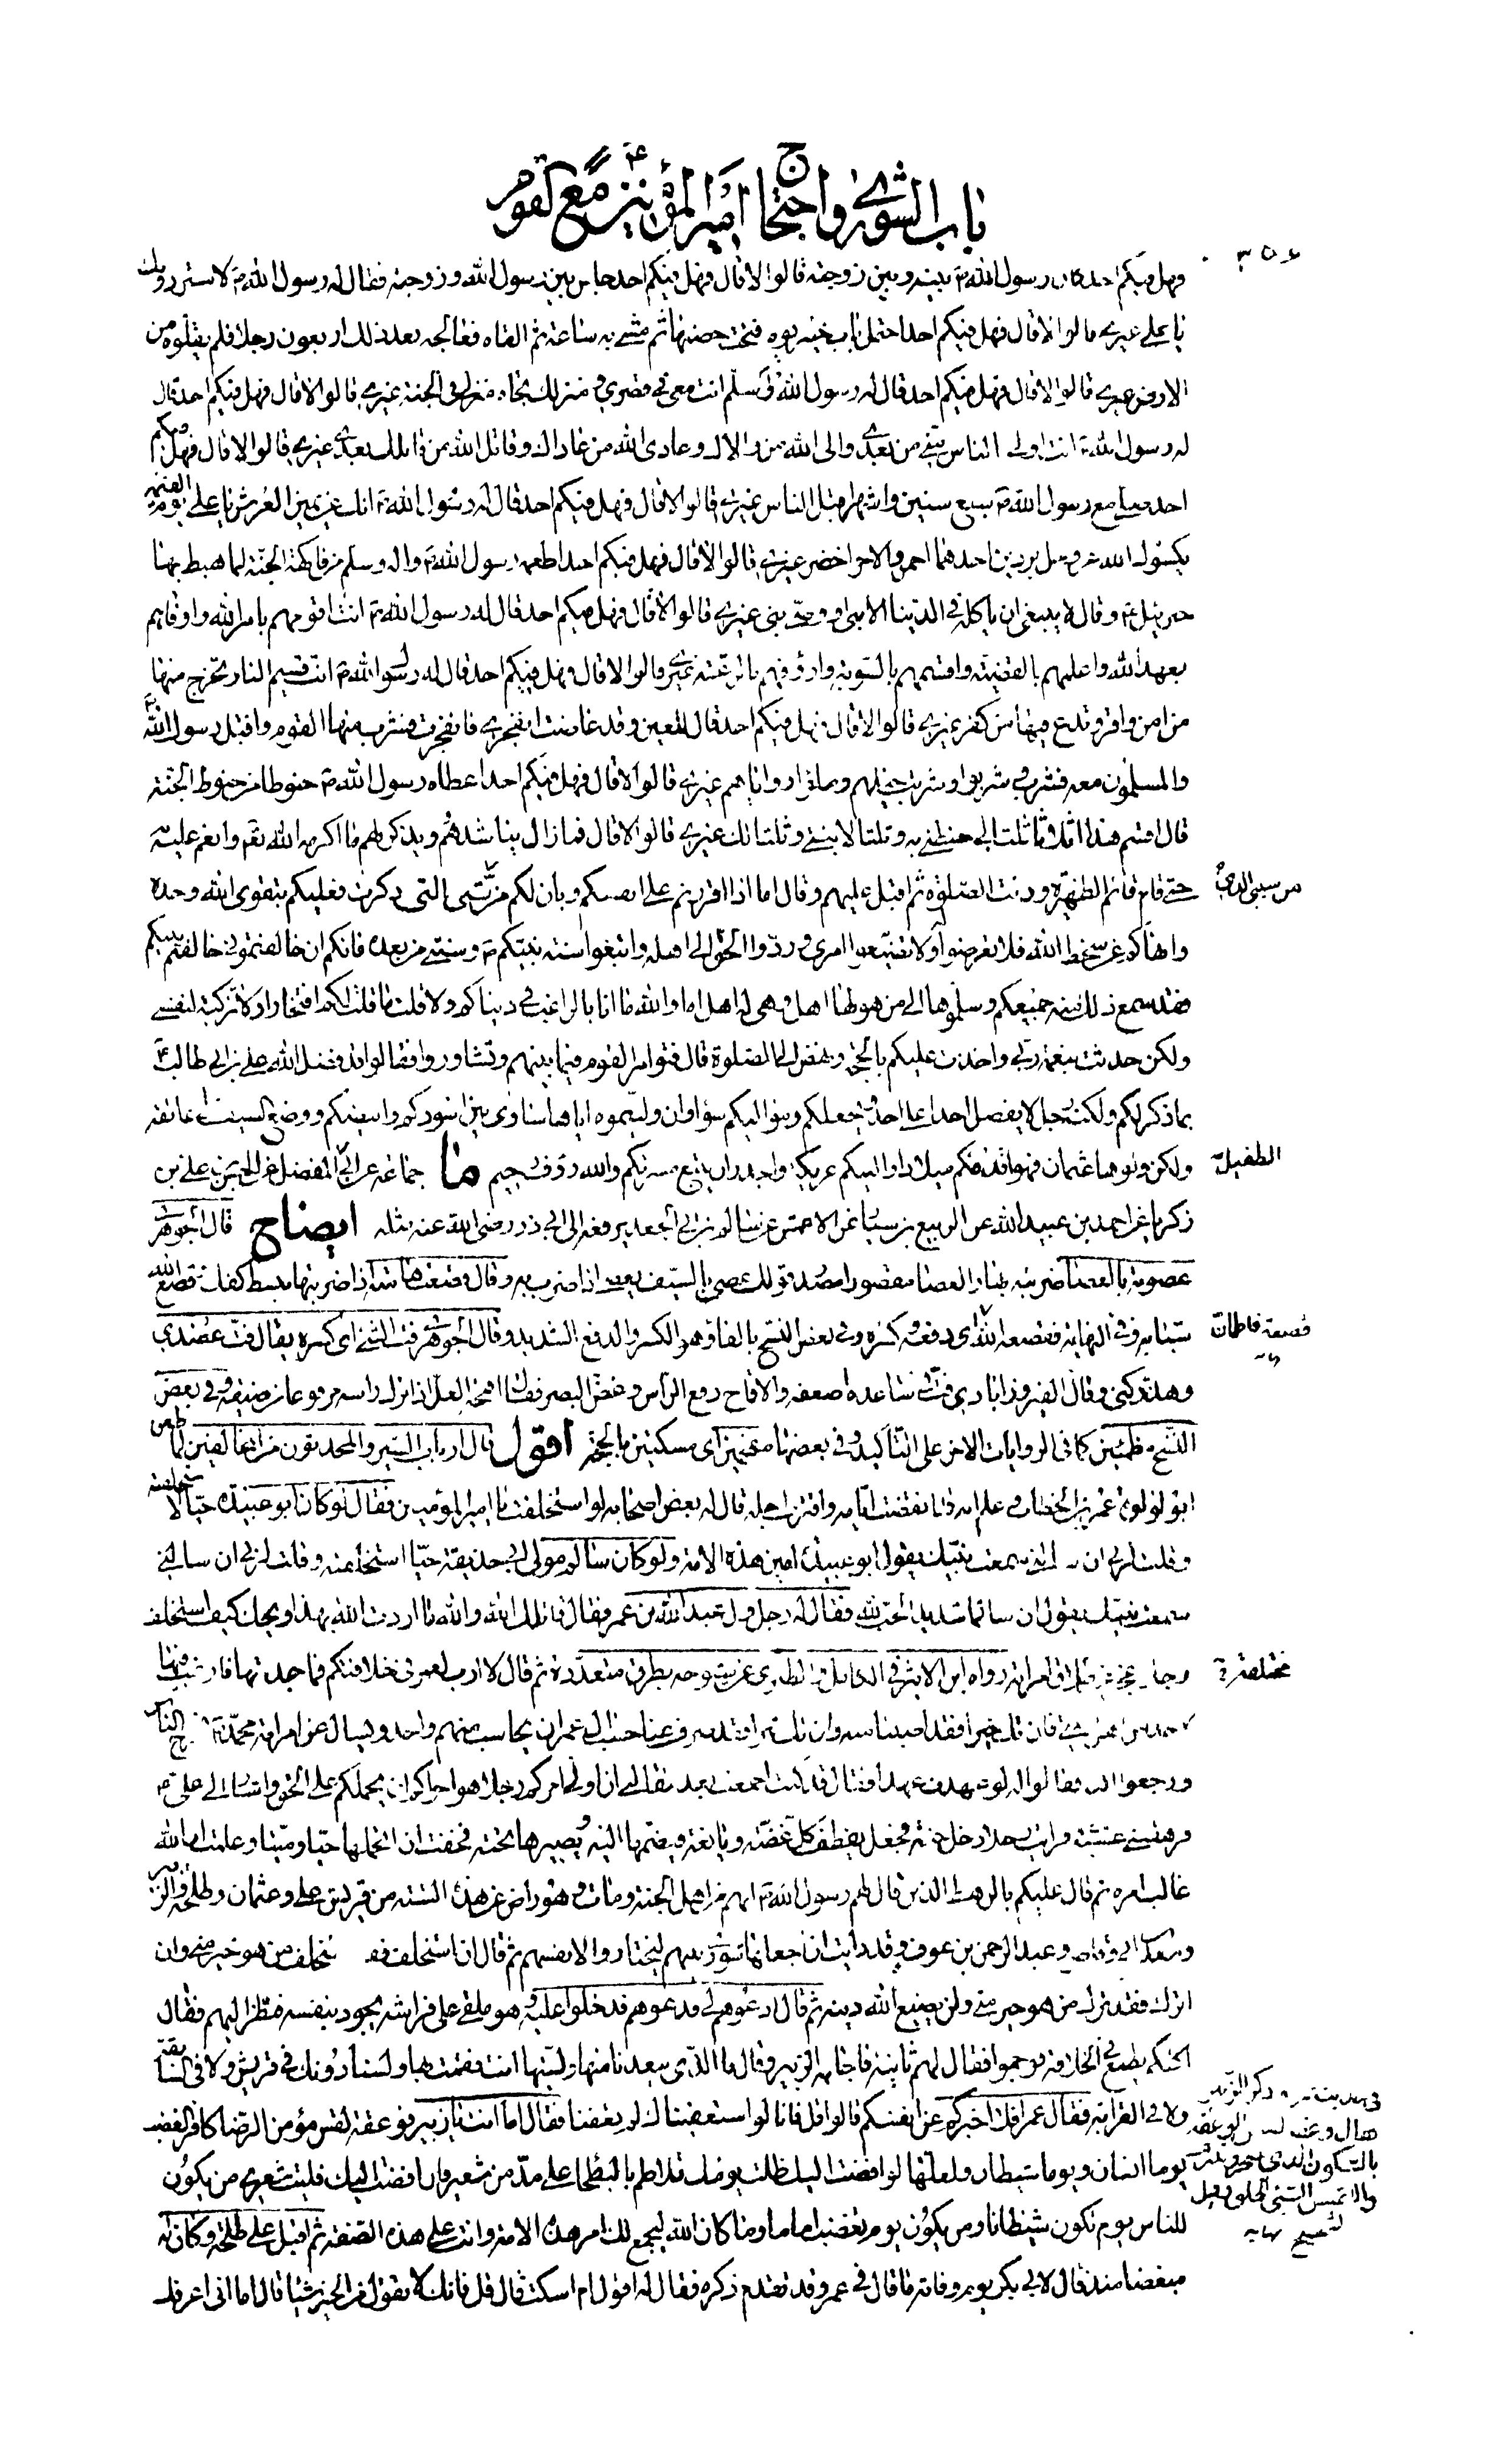 باب الشورى واحتجاج امير المؤمنين ع مع القوم
٣٥٦
فهل فيكم احد كان رسول الله ص بينه وبين زوجته قالوا لا قال فهل فيكم احد جلس بين رسول الله وزوجته فقال له رسول الله ص لا ستر دونك
يا علي غيري قالوا لا قال فهل فيكم احد احتمل باب خيبر يوم فتحت حصنها ثم مشى به ساعة ثم القاه فعالجه بعد ذلك اربعون رجلا فلم يقلوه من
الارض غيري قالوا لا قال فهل فيكم احد قال له رسول الله انت معي في قصري ومنزلك تجاه منزلي في الجنة غيري قالوا لا قال فهل فيكم احد قال
له رسول الله ص انت اولى الناس بامتي من بعدي والى الله من والاك وعادى الله من عاداك وقاتل الله من قاتلك بعدي غيري قالوا لا قال فهل فيكم
احد صلى مع رسول الله ص سبع سنين واشهرا قبل الناس غيري قالوا لا قال فهل فيكم احد قال له رسول الله ص انك عن يمين العرش يا علي يوم القيمة
يكسوك الله عز وجل بردين احدهما احمر والاخر اخضر غيري قالوا لا قال فهل فيكم احد اطعمه رسول الله ص واله وسلم من فاكهة الجنة لما هبط بها
جبرئيل ع وقال لا ينبغي ان ياكله في الدنيا الا نبي او وصي نبي غيري قالوا لا قال فهل فيكم احد قال له رسول الله ص انت اقومهم بامر الله واوفاهم
بعهد الله واعلمهم بالقضية واقسمهم بالسوية وارؤفهم بالرعية غيري قالوا لا قال فهل فيكم احد قال له رسول الله ص انت قسيم النار تخرج منها
من امن واقر وتدع فيها من كفر غيري قالوا لا قال فهل فيكم احد قال للعين وقد غاضت انفجري فانفجرت فشرب منها القوم واقبل رسول الله ص
والمسلمون معه فشرب وشربوا وشربت خيلهم وملؤا رواياهم غيري قالوا لا قال فهل فيكم احد اعطاه رسول الله ص حنوطا من حنوط الجنة
قال اقسم هذا اثلاثا ثلثا لي حنطني به وثلثا لابنتي وثلثا لك غيري قالوا لا قال فما زال يناشدهم ويذكر لهم ما اكرمه الله تعالى وانعم عليه
حتى قام قائم الظهيرة ودنت الصلوة ثم اقبل عليهم وقال اما اذا اقررتم على انفسكم وبان لكم من سببي الذي ذكرت فعليكم بتقوى الله وحده
وانهاكم عن سخط الله فلا تعرضوا ولا تضيعوا امري وردوا الحق الى اهله واتبعوا سنة نبيكم ص وسنتي من بعده فانكم ان خالفتموني خالفتم نبيكم
فقد سمع ذلك منه جميعكم وسلموها الى من هو لها اهل وهي له اهل اما والله ما انا بالراغب في دنياكم ولا قلت ما قلت لكم افتخارا ولا تزكية لنفسي
ولكن حدثت بنعمة ربي واخذت عليكم بالحجة ونهض الى الصلوة قال فتوامر القوم فيما بينهم وتشاوروا فقالوا قد فضل الله علي بن ابي طالب ع
بما ذكر لكم ولكنه رجل لا يفضل احدا على احد ويجعلكم ومواليكم سواء وان وليتموه اياها ساوى بين اسودكم وابيضكم ووضع السيف على عاتقه
ولكن ولوها عثمان فهو اقدمكم ميلادا والينكم عريكة واجدر ان يتبع مسرتكم والله رؤف رحيم ما جماعة عن ابي المفضل عن الحسن بن علي بن
زكريا عن احمد بن عبيد الله عن الربيع بن سيار عن الاعمش عن سالم بن ابي الجعد يرفعه الى ابي ذر رضي الله عنه مثله ايضاح قال الجوهري
عصوته بالعصا ضربته بها والعصا مقصورا مصدر قولك عصي بالسيف يعصى اذا ضرب به وقال قصعت هامته اذا ضربتها ببسط كفك وقصع الله
شبابه وفي النهاية فقصعه الله اي دفعه وكسره وفي بعض النسخ بالفاء وهو الكسر والدفع الشديد وقال الجوهري فت الشئ اي كسره يقال فت عضدي
وهد ركني وقال الفيروزابادي فت في ساعده اضعفه والاقماح رفع الراس وغض البصر
النسخ مطمئنين كما في الروايات الاخر على التاكيد وفي بعضها مفحمين اي مسكتين بالحجة اقول قال ارباب السير والمحدثون من المخالفين لما طعن
ابو لؤلؤة عمر بن الخطاب وعلم انه قد انقضت ايامه واقترب اجله قال له بعض اصحابه لو استخلفت يا امير المؤمنين فقال لو كان ابو عبيدة حيا لاستخلفته
وقلت لربي ان سالني سمعت نبيك يقول ابو عبيدة امين هذه الامة ولو كان سالم مولى ابي حذيفة حيا استخلفته وقلت لربي ان سالني
سمعت نبيك يقول ان سالما شديد الحب لله فقال له رجل ول عبد الله بن عمر فقال قاتلك الله والله ما اردت الله بهذا ويحك كيف استخلف
رجلا عجز عن طلاق امراته رواه ابن الاثير في الكامل والطبري عن شيوخه بطرق متعددة ثم قال لا ارب لعمر في خلافتكم فما حمدتها فارغب فيها
لاحد من اهل بيتي فان تك خيرا فقد اصبنا منه وان تك شرا فقد صرف عنا حسب آل عمر ان يحاسب منهم واحد ويسال عن امر امة محمد ص فخرج الناس
وراجعوا اليه فقالوا له لو عهدت عهدا فقال قد كنت اجمعت بعد مقالتي ان اولي امركم رجلا هو احراكم ان يحملكم على الحق واشار الى علي ع
فرهقتني غشية فرايت رجلا دخل جنة فجعل يقطف كل غضة ويانعة فيضمها اليه ويصيرها تحته فخفت ان اتحملها حيا وميتا وعلمت ان الله
غالب امره ثم قال عليكم بالرهط الذين قال لهم رسول الله ص انهم من اهل الجنة ومات وهو راض عن هذه الستة من قريش علي وعثمان وطلحة والزبير
وسعد بن ابي وقاص وعبد الرحمن بن عوف وقد رايت ان اجعلها شورى بينهم ليختاروا لانفسهم ثم قال ان استخلف فقد استخلف من هو خير مني وان
اترك فقد ترك من هو خير مني ولن يضيع الله دينه ثم قال ادعوهم لي فدعوهم فدخلوا عليه وهو ملقى على فراشه يجود بنفسه فنظر اليهم فقال
اكلكم يطمع في الخلافة فوجموا فقال لهم ثانية فاجابه الزبير وقال ما الذي يبعدنا منها وليتها انت فقمت بها ولسنا دونك في قريش ولا في السابقة
ولا في القرابة فقال عمر افلا اخبركم عن انفسكم قالوا قل فانا لو استعفيناك لم تعفنا فقال اما انت يا زبير فوعقة لقس مؤمن الرضا كافر الغضب
يوما انسان ويوما شيطان ولعلها لو افضت اليك ظلت يومك تلاطم بالبطحاء على مد من شعير فان افضت اليك فليت شعري من يكون
للناس يوم تكون شيطانا ومن يكون يوم تغضب اماما وما كان الله ليجمع لك امر هذه الامة وانت على هذه الصفة ثم اقبل على طلحة وكان له
مبغضا منذ قال لابي بكر يوم وفاته ما قال في عمر وقد تقدم ذكره فقال له اقول ام اسكت قال قل فانك لا تقول من الخير شيئا قال اما اني اعرفك
من سببي الذي
الطفيل
مختلفة